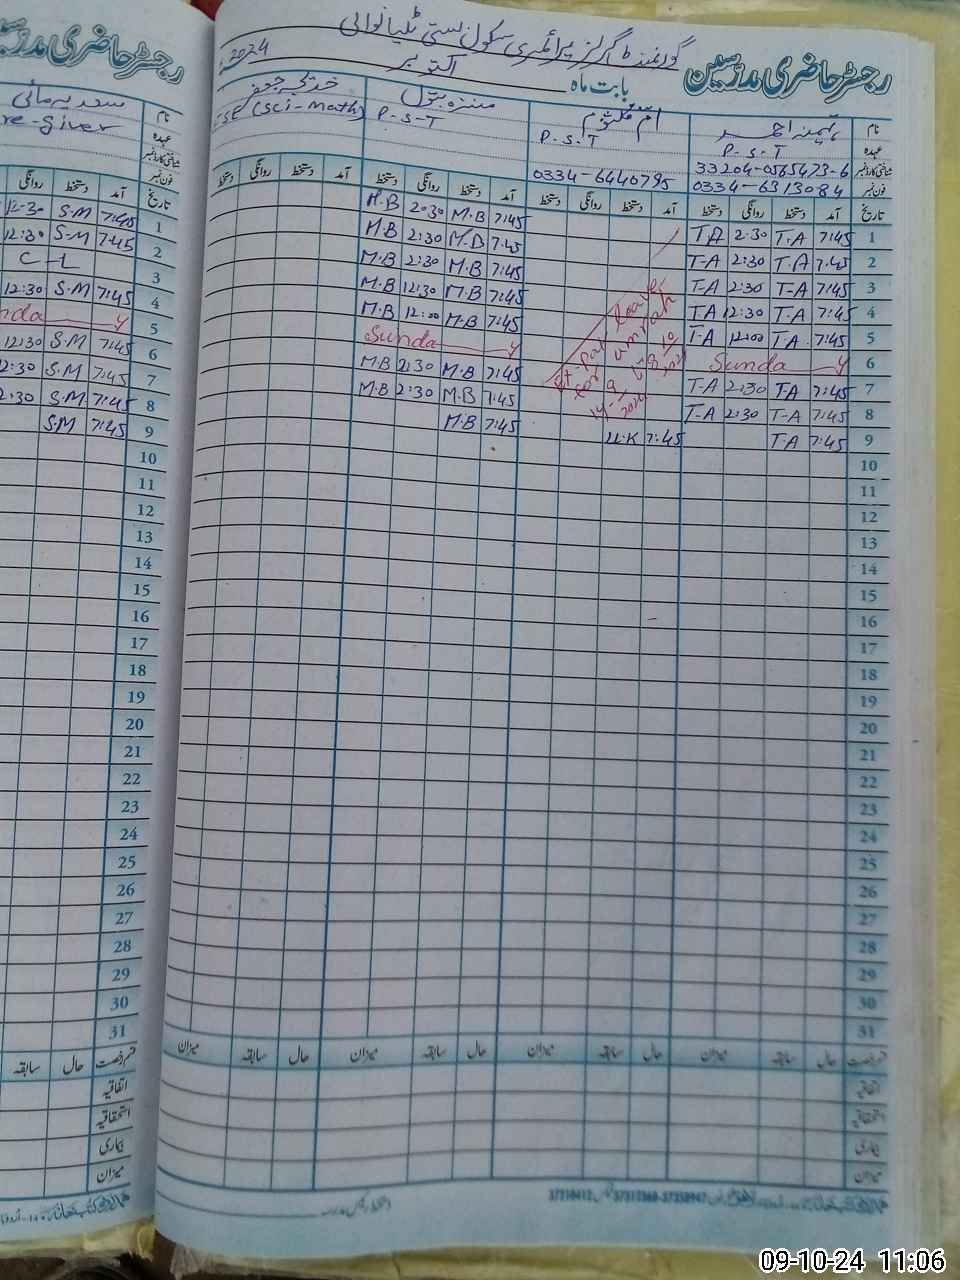 رجسٹر حاضری مدرسین
گورنمنٹ گرلز پرائمری سکول بستی
بابت ماہ اکتوبر 2024
نام
ام کلثوم
خدیجہ جعفر
عہدہ P-S-T
P-S-T
P-S-T
(Sci-Math)
شناختی کارڈ نمبر 33204-0565473-6
فون نمبر 0334-6313084
0334-6440795
تاریخ آمد دستخط روانگی دستخط آمد دستخط روانگی دستخط آمد دستخط روانگی دستخط آمد دستخط روانگی دستخط
1 7:45 T.A 2:30 T.A 7:45 M.B 2:30 M.B
2 7:45 T.A 2:30 T-A 7:45 M.B 2:30 M.B
3 7:45 T-A 2:30 T-A 7:45 M.B 2:30 M.B
4 7:45 T-A 12:30 T.A 7:45 M.B 12:30 M.B
5 7:45 T.A 12:00 T.A 7:45 M.B 12:00 M.B
6 Sunday Sunday
7 7:45 T.A 2:30 T-A 7:45 M.B 2:30 M.B
8 7:45 T-A 2:30 T-A 7:45 M.B 2:30 M.B
9 7:45 T-A 7:45 U.K 7:45 M.B
Ex-pak leave
for umrah
10
11
12
13
14
15
16
17
18
19
20
21
22
23
24
25
26
27
28
29
30
31
حال سابقہ میزان حال سابقہ میزان حال سابقہ میزان حال سابقہ میزان
اتفاقیہ
استحقاقیہ
بیماری
میزان
رجسٹر حاضری مدرسین
نام
عہدہ re-giver
شناختی کارڈ نمبر
فون نمبر
تاریخ آمد دستخط روانگی
1 7:45 S.M 12:30
2 7:45 S-M 12:30
3 C-L
4 7:45 S.M 12:30
5 nday
6 7:45 S.M 12:30
7 7:45 S.M 2:30
8 7:45 S.M 2:30
9 7:45 S.M
10
11
12
13
14
15
16
17
18
19
20
21
22
23
24
25
26
27
28
29
30
31
حال سابقہ
اتفاقیہ
استحقاقیہ
بیماری
میزان
09-10-24 11:06